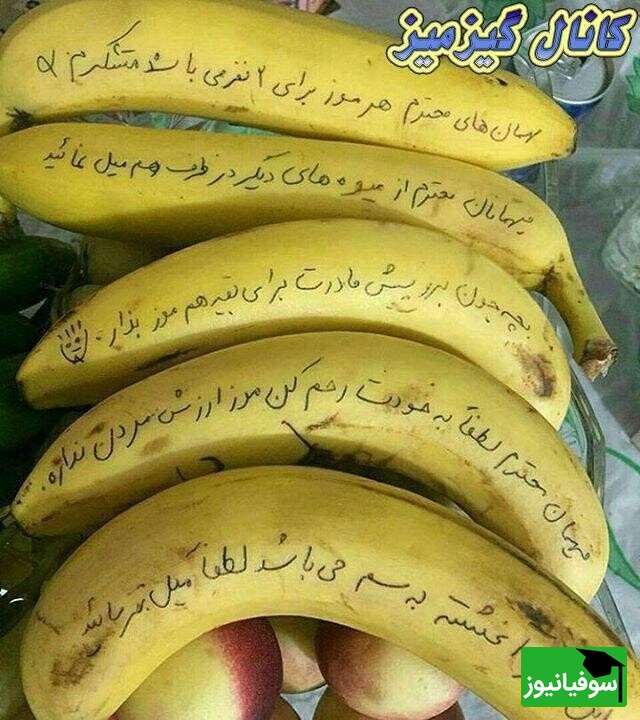 کانال گیزمیز
مهمان های محترم هر موز برای ۲ نفر می باشد متشکرم
میهمانان محترم از میوه های دیگر در ظرف هم میل نمائید
بچه جون برو پیش مادرت برای بقیه هم موز بذار.
میهمان محترم لطفاً به خودت رحم کن موز ارزش مردن نداره.
آغشته به سم می باشد لطفاً میل نفرمائید
سوفیانیوز